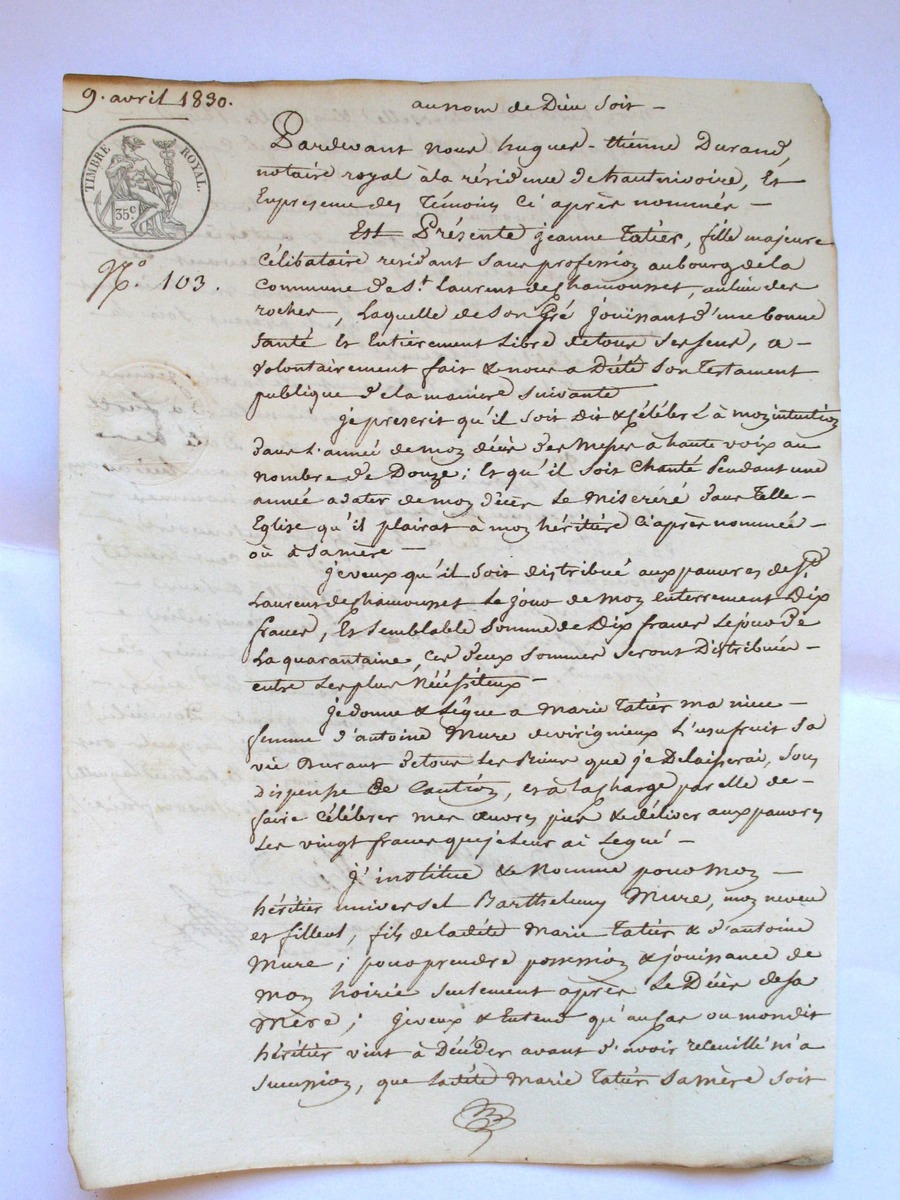 9. avril 1830.
au nom de Dieu soit —
TIMBRE ROYAL.
35 c
N.o 103.
Pardevant nous hugues-étienne Durand,
notaire royal à la résidence de hauterivoire, Et
En presence des Témoins Ci après nommés —
Est Présente jeanne Tatier, fille majeure
Célibataire residant sans profession au bourg de la
Commune de St. Laurent de Chamousset, au lieu des
rocher, Laquelle de Son Gré jouissant d'une bonne
Santé Et Entièrement Libre de tous ses sens, a —
volontairement fait & nous a Dicté Son Testament
publique de la manière Suivante
je prescrit qu'il soit Dit & Célébré à mon intention
dans l'année de mon décès des Messes à haute voix au
nombre de Douze; Et qu'il Soit Chanté Pendant une
année a dater de mon décès Le Miséréré dans Telle —
Eglise qu'il plairat à mon héritière Ci après nommée —
où à Sa mère —
je veux qu'il Soit distribué aux pauvres de St.
Laurent de Chamousset Le jour de mon enterrement Dix
francs, Et Semblable Somme de Dix francs Le jour de
La quarantaine, Ces deux Sommes Seront Distribuées —
entre Les plus Nécéssiteux —
Je donne & Légue a Marie Tatier ma niece —
femme d'antoine Mure de virignieux L'usufruit Sa
vie Durant de tous Les Biens que je Delaisserai, Sous
dispense de Caution, et à la Charge par elle de —
faire Célébrer mes œuvres pies & de délivrer aux pauvres
Les vingt francs que je leur ai Legué —
J'institue & Nomme pour Mon —
héritier universel Barthelemy Mure, mon neveu
et filleul, fils de ladite Marie Tatier & d'antoine
Mure; pour prendre possession & jouissance de
Mon hoirie Seulement après Le Décès de Sa
Mère; je veux & Entend qu'au Cas ou mondit
héritier vint à Décéder avant d'avoir receuillé m'a
Succession, que ladite Marie Tatier Sa mère Soit